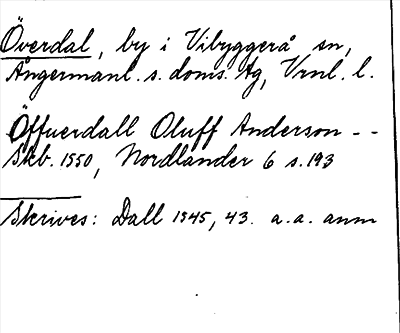 Överdal, by i Vibyggerå sn,
Ångermanl. s. doms. tg, Vrnl. l.
Öffuerdall Oluff Anderson - -
Skb. 1550, Nordlander 6 s. 193
Skrives: Dall 1545, 43. a. a. anm